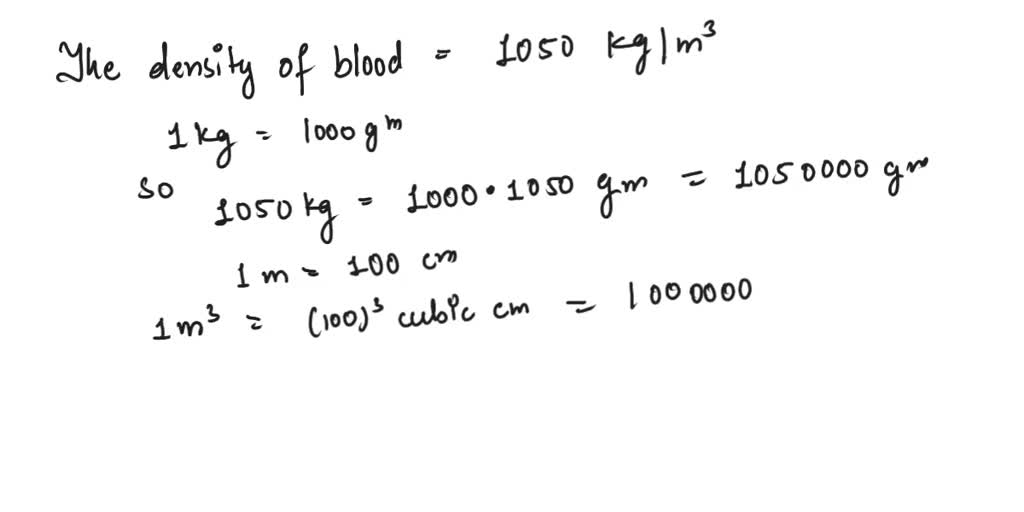 The density of blood = 1050 kg/m³
1 kg = 1000 gm
so
1050 kg = 1000 • 1050 gm = 1050000 gm
1 m = 100 cm
1 m³ = (100)³ cubic cm = 1000000